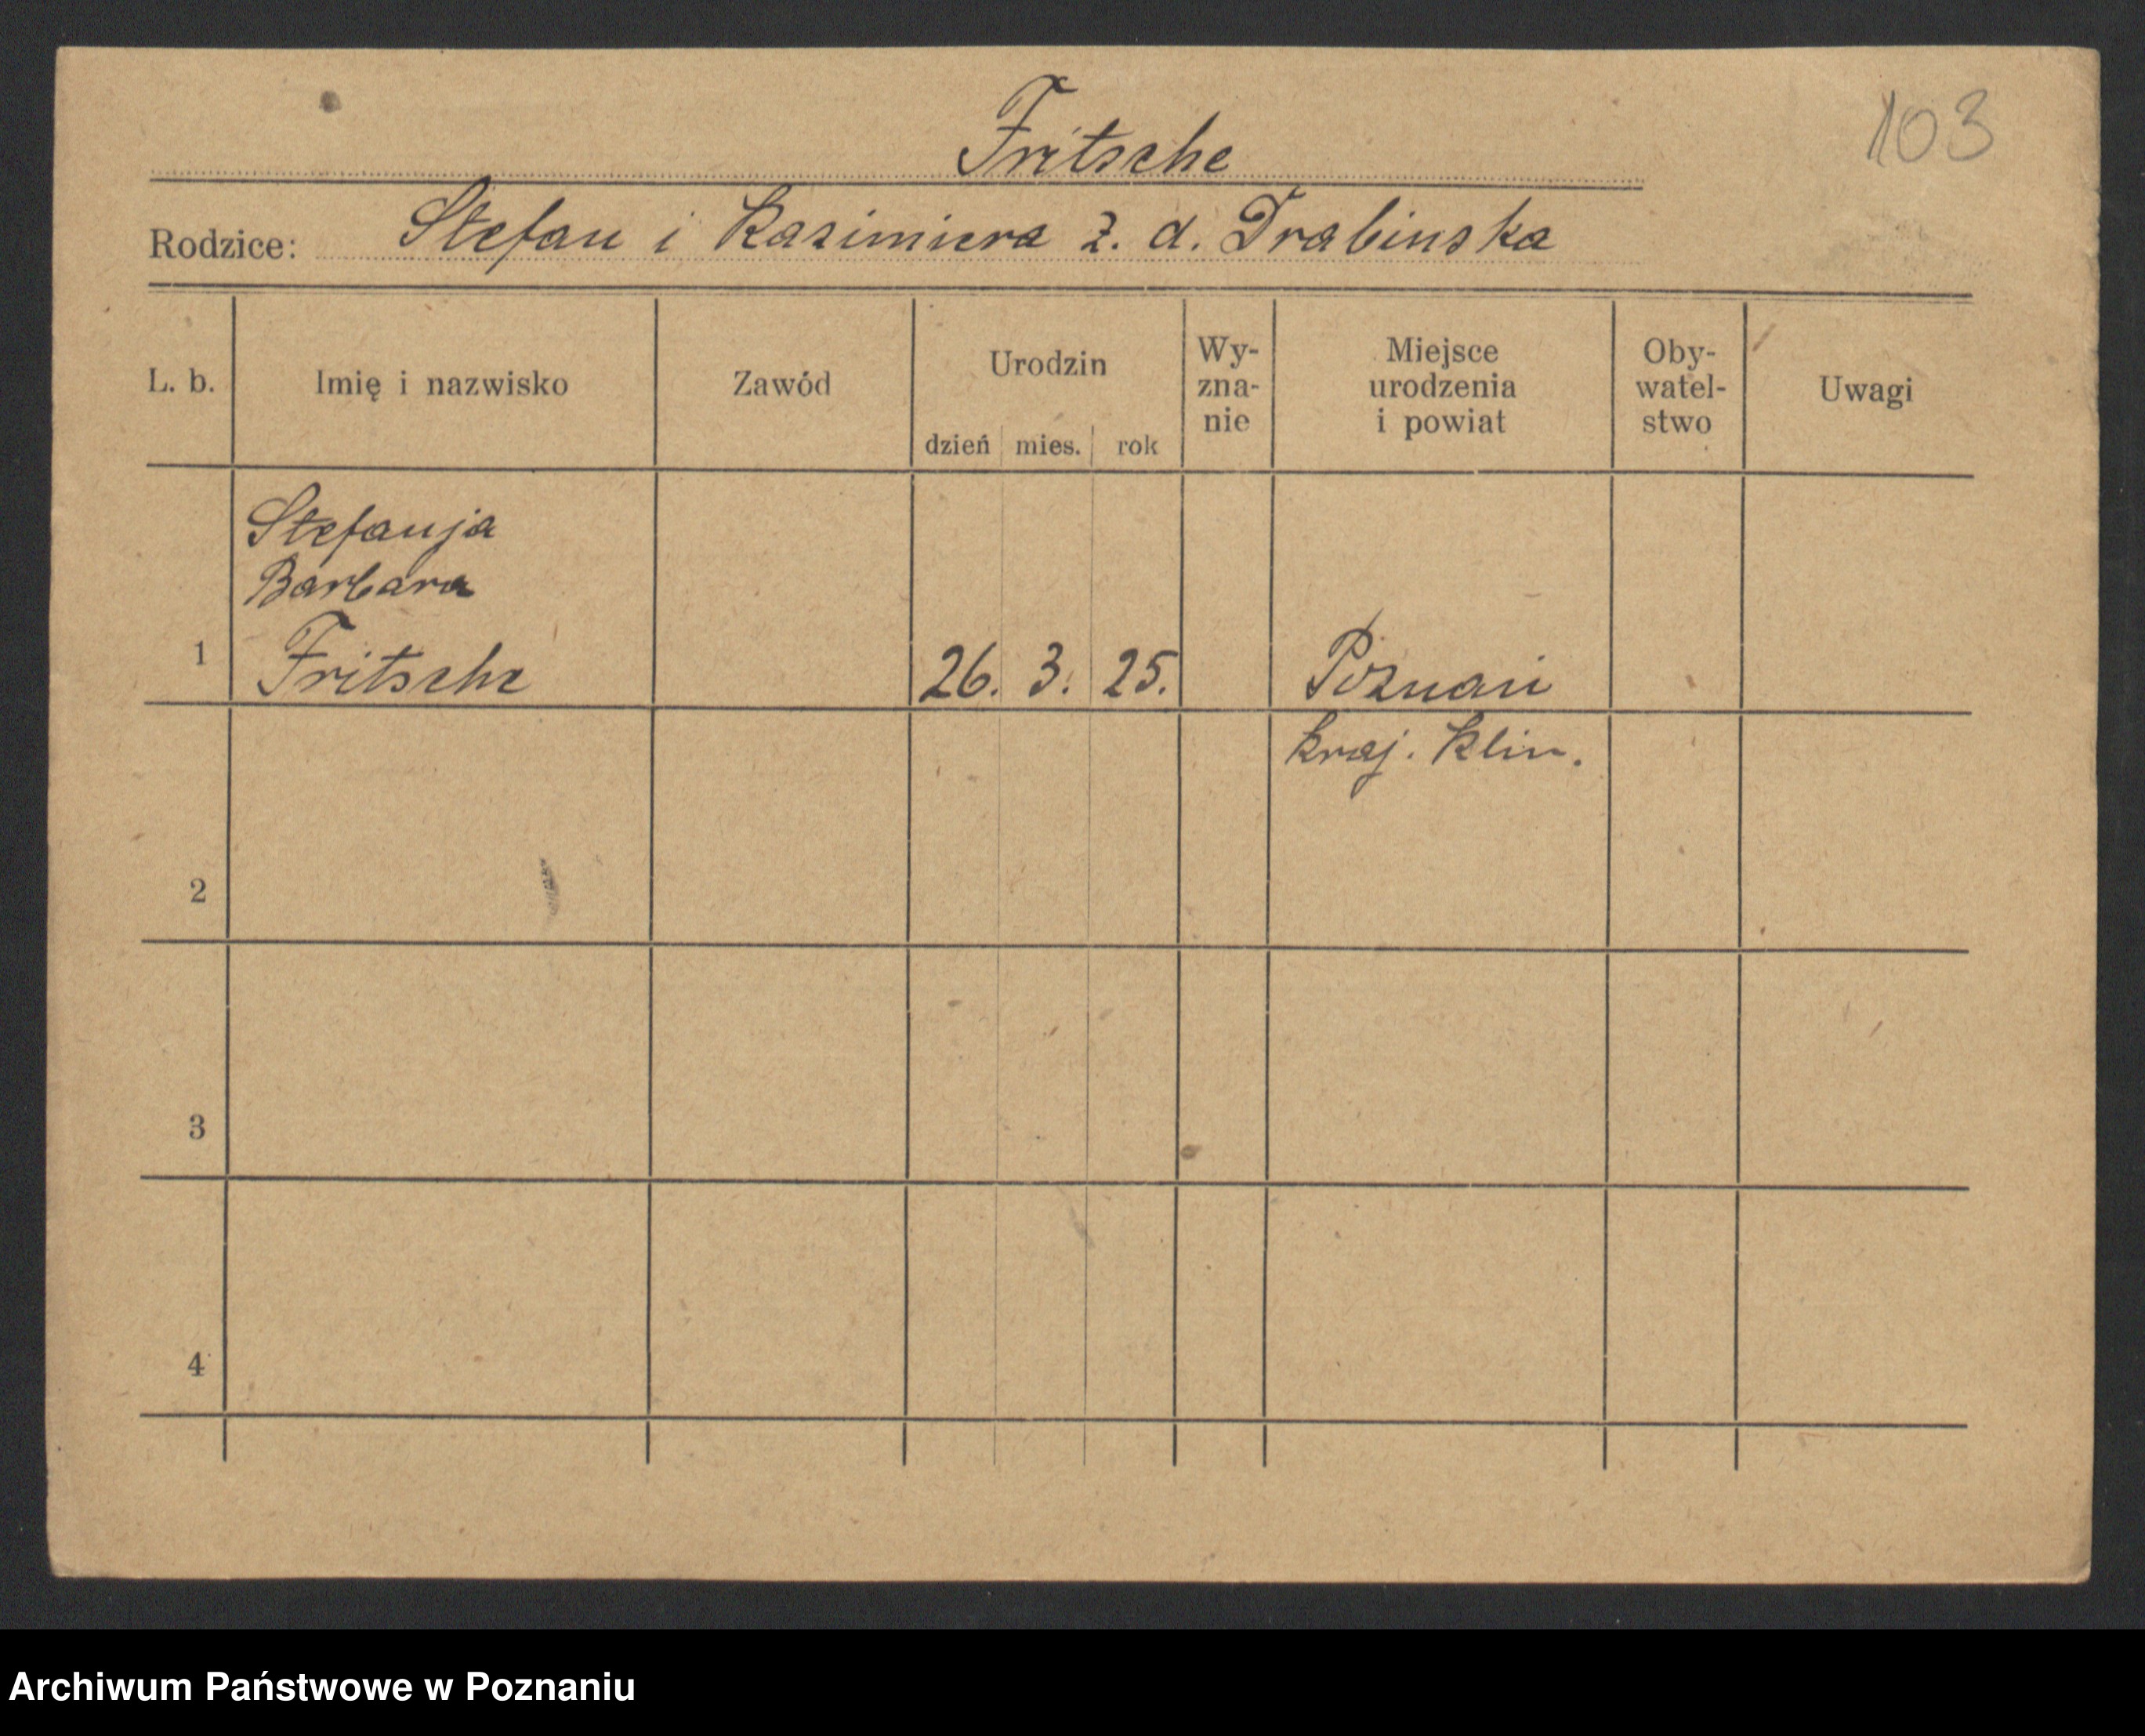 103
Fritsche
Rodzice: Stefan i Kazimiera z. d. Drabinska
L. b. Imię i nazwisko Zawód Urodzin dzień mies. rok Wy-zna-nie Miejsce urodzenia i powiat Oby-watel-stwo Uwagi
Stefanja
Barbara
1 Fritsche 26. 3. 25. Poznań
kraj. klin.
2
3
4
Archiwum Państwowe w Poznaniu